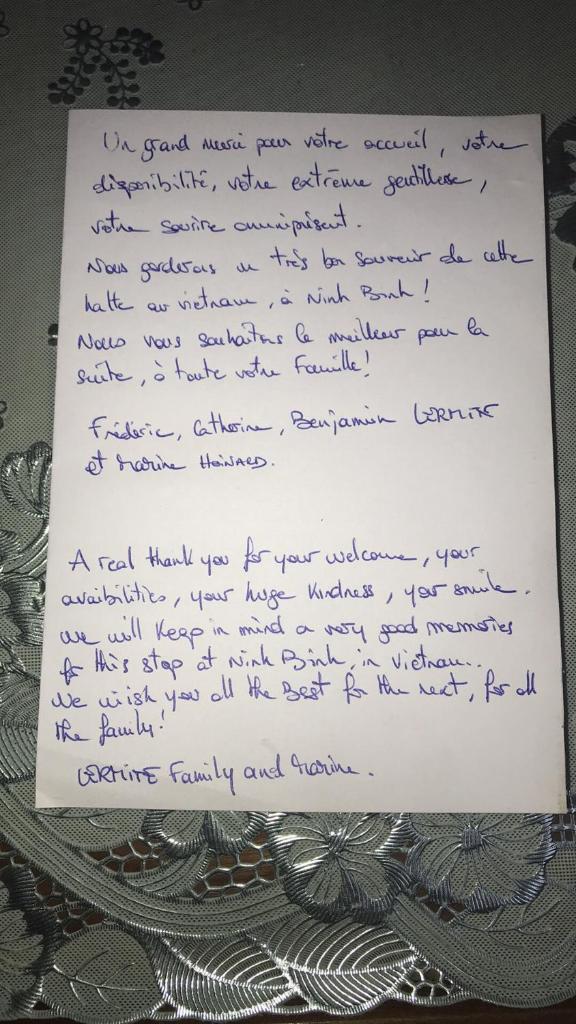 Un grand merci pour votre accueil, votre
disponibilité, votre extrême gentillesse,
votre sourire omniprésent.
Nous garderons un très bon souvenir de cette
halte au vietnam, à Ninh Binh!
Nous vous souhaitons le meilleur pour la
suite, à toute votre Famille!
Frédéric, Catherine, Benjamin LERMITE
et Marine HOINARD.
A real thank you for your welcome, your
avaibilities, your huge kindness, your smile.
We will keep in mind a very good memories
for this stop at Ninh Binh, in Vietnam..
We wish you all the Best for the next, for all
the family!
LERMITE Family and Marine.